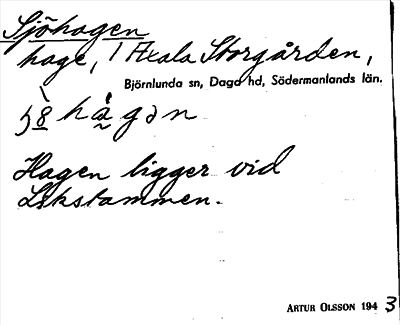 Sjöhagen
hage, i Axala Storgården,
Björnlunda sn, Daga hd, Södermanlands län.
Hagen ligger vid
Lekstammen.
ARTUR OLSSON 1943